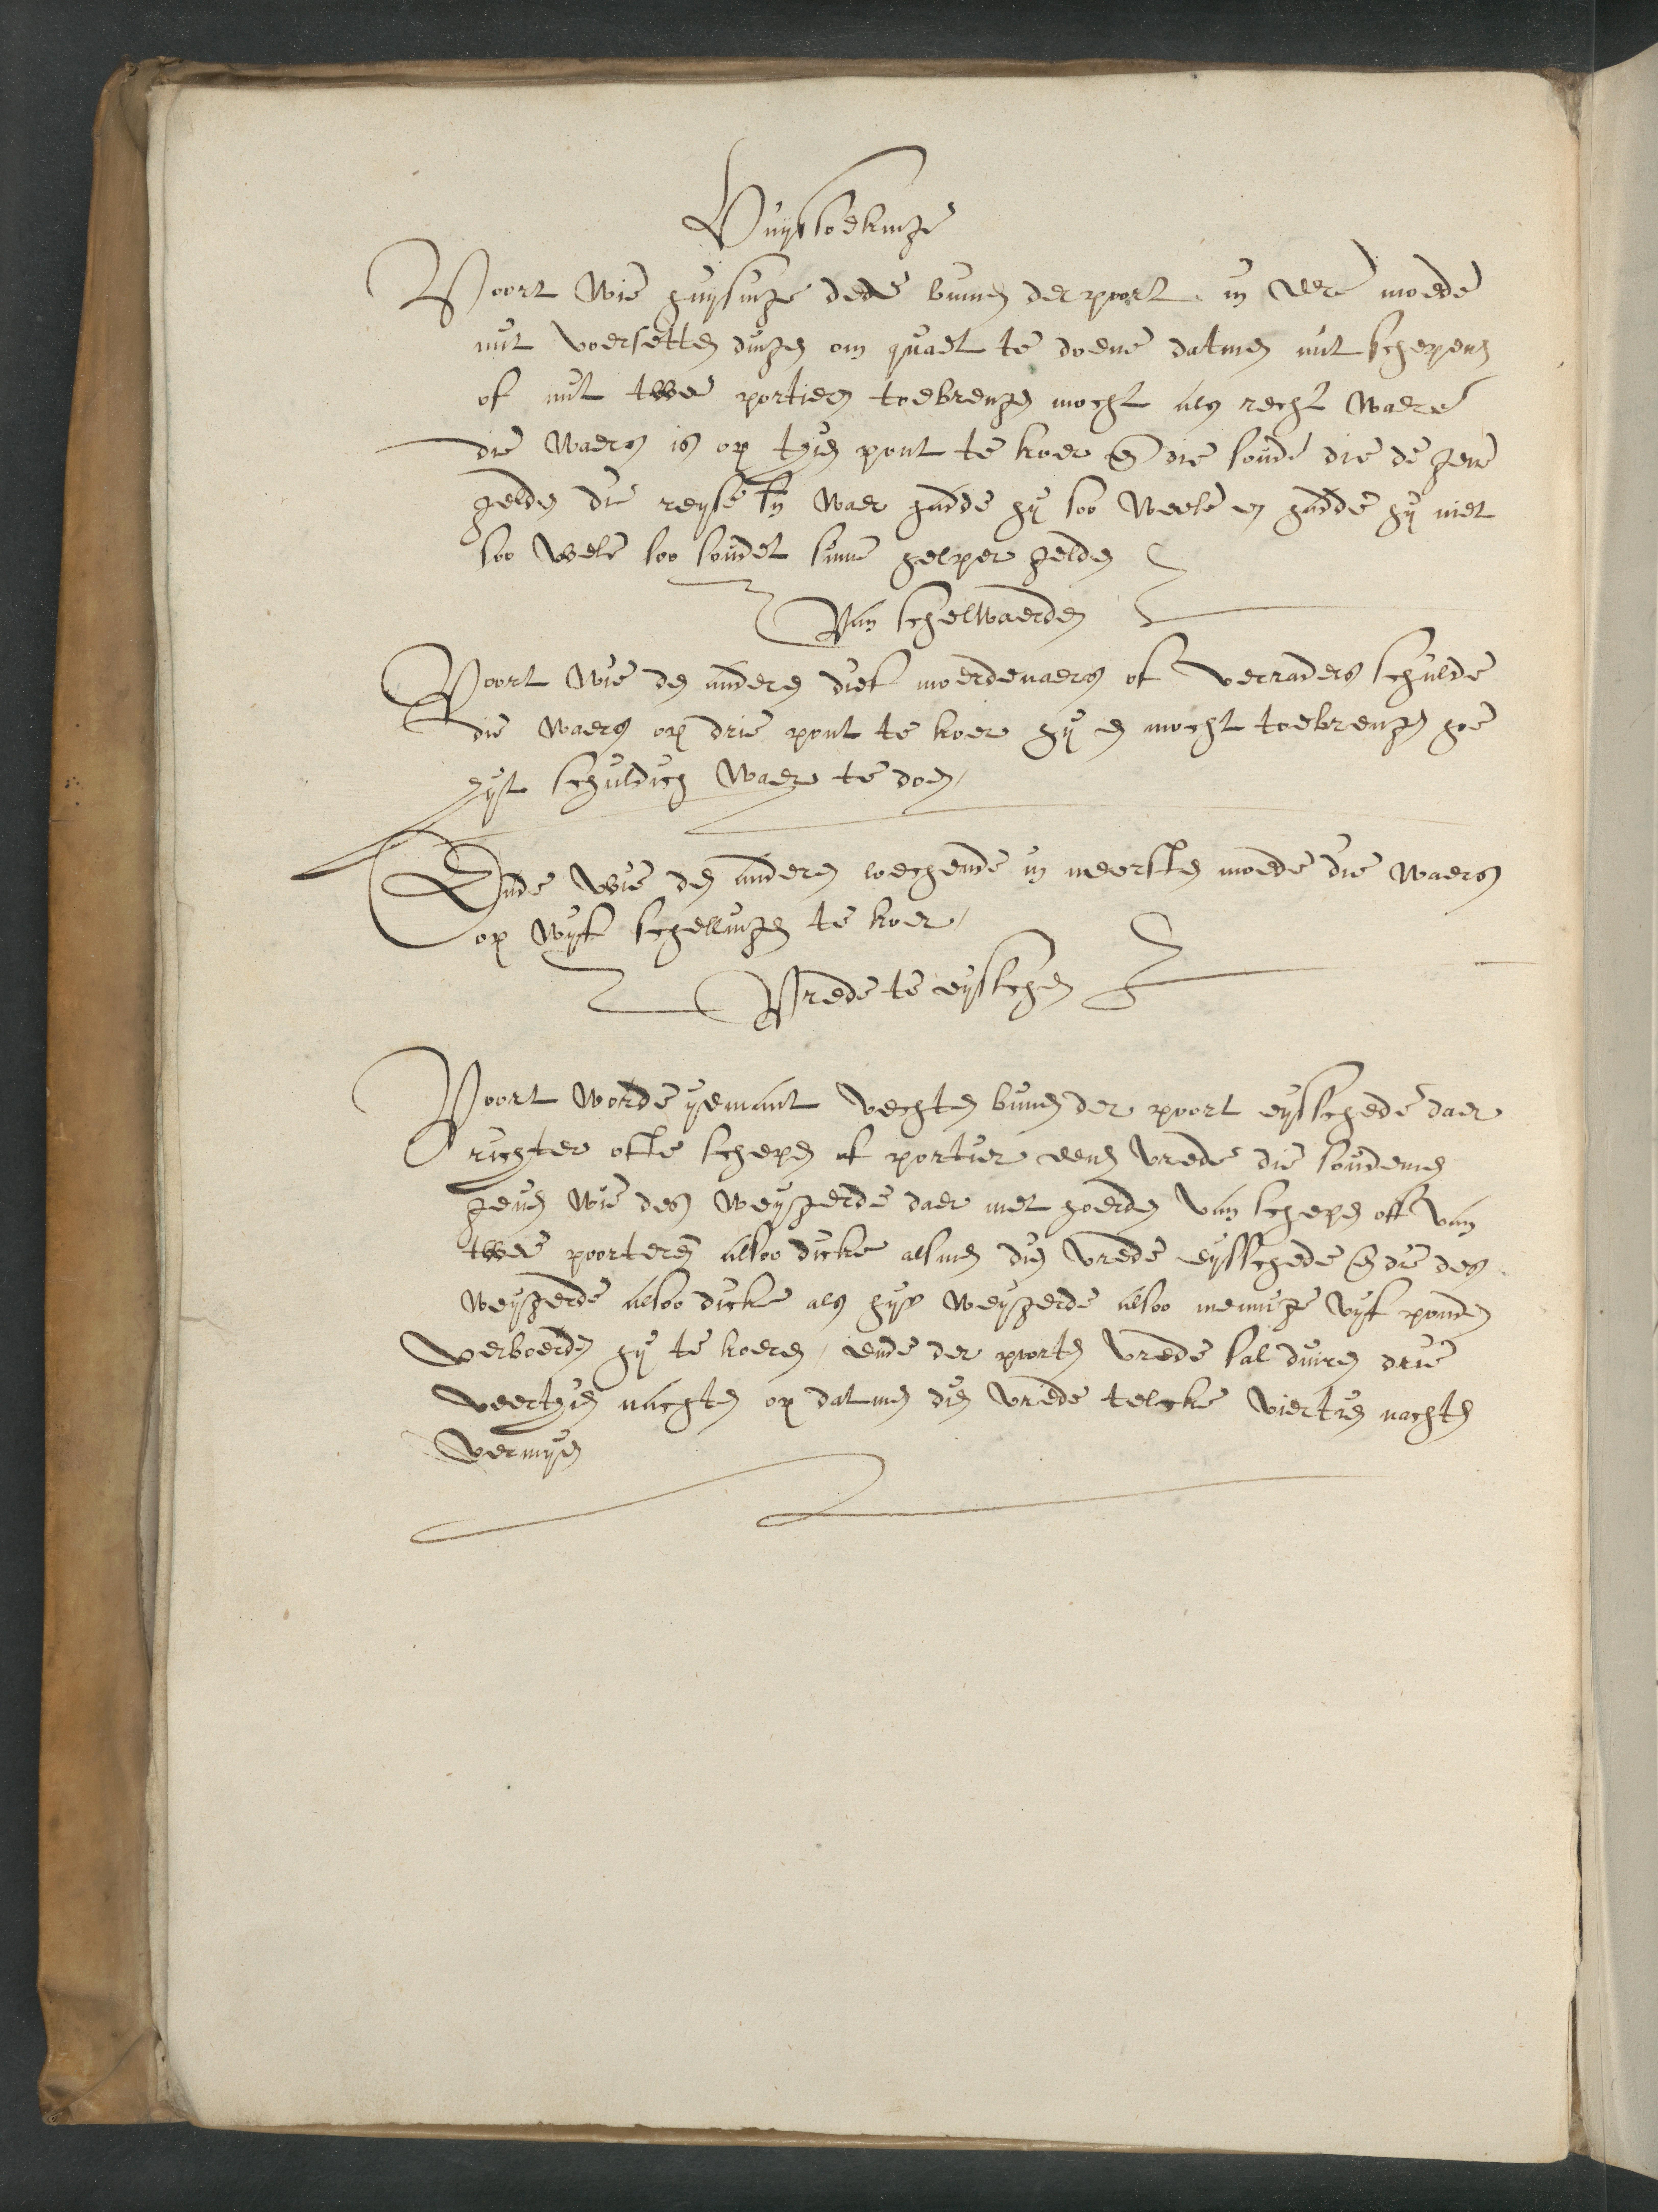 Huijssoekinge
Voort wie huijsinge dede binnen der poort in eere moede
mit voersetten dingen om quaet te doene datmen mit schepens
of mit twee portiers toebrengen mocht als recht waere
die waers is op tyen pont te koer en die soude die de gene
gelden die reyse syn waer hadde hij soo veele en hadde hij niet
soo vele soo soudet sinne helper gelden
Van schelwaerden
Voort wie den anderen dief moerdenaers of verraders schulde
die waers op drie pont te koer hij en mocht toebrengen hoe
hijt schuldich waer te doen
Ende wie den anderen loechende in neersten moede die waers
op vijf schellingen te koer
Vrede te eijsschen
Voort worde ijemant vechten binnen der poort eijsschede daer
richter ofte schepen of portier eens vrede die soudemen
geven wie des weijgerde daer met hoerden van schepen oft van
twee poorteren alsoo dicke alsmen dien vrede eijsschede en die des
weijgerde alsoo dicke als hijs weijgerde alsoo mennige vijf ponden
verboerden hij te koeren, ende der poorten vrede sal duiren drie
veertyen nachten op datmen dien vrede telcke viertien nachten
vernijen